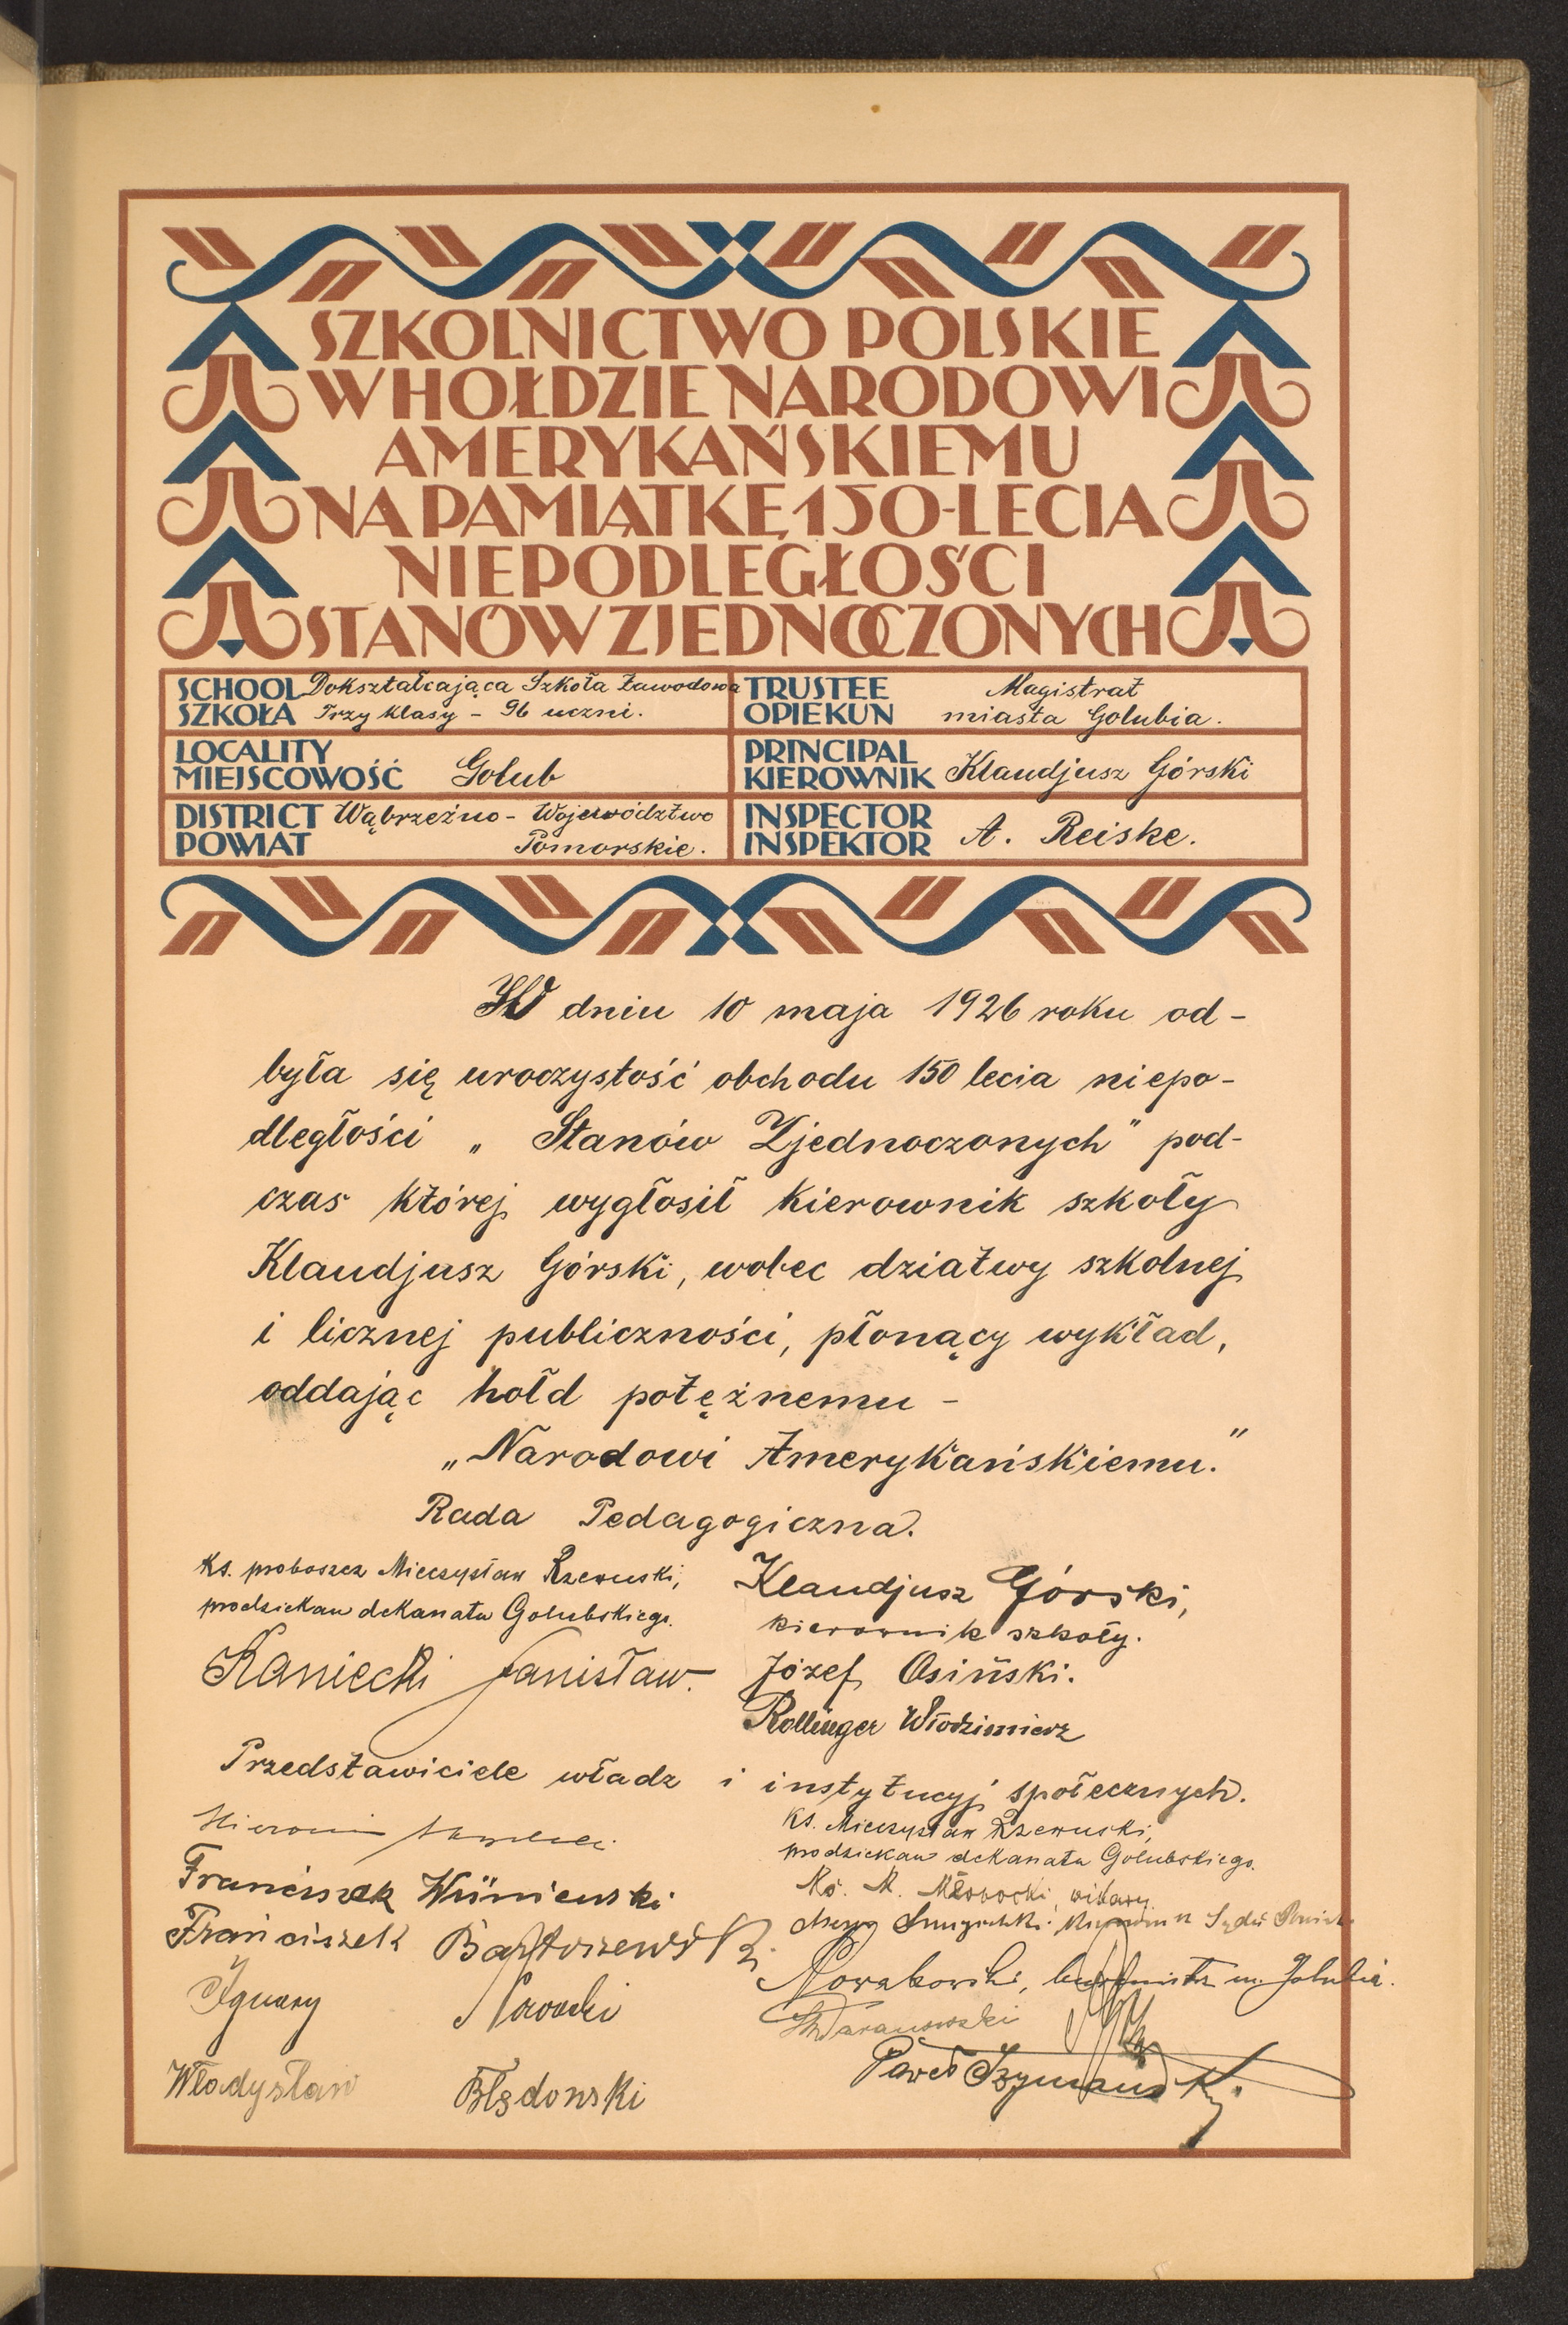 SZKOLNICTWO POLSKIE
W HOŁDZIE NARODOWI
AMERYKAŃSKIEMU
NA PAMIĄTKĘ 150-LECIA
NIEPODLEGŁOŚCI
STANÓW ZJEDNOCZONYCH
SCHOOL Dokształcająca Szkoła Zawodowa
SZKOŁA Trzy klasy - 96 uczni.
TRUSTEE Magistrat
OPIEKUN miasta Golubia.
LOCALITY
MIEJSCOWOŚĆ Golub
PRINCIPAL
KIEROWNIK Klaudjusz Górski
DISTRICT Wąbrzeźno - Województwo
POWIAT Pomorskie.
INSPECTOR
INSPEKTOR A. Reiske.
W dniu 10 maja 1926 roku od-
była się uroczystość obchodu 150 lecia niepo-
dległości „Stanów Zjednoczonych" pod-
czas której wygłosił kierownik szkoły
Klaudjusz Górski, wobec dziatwy szkolnej
i licznej publiczności, płonący wykład,
oddając hołd potężnemu -
„Narodowi Amerykańskiemu."
Rada Pedagogiczna.
Ks. proboszcz Mieczysław Rzewuski,
prodziekan dekanatu Golubskiego.
Kaniecki Stanisław.
Klaudjusz Górski,
kierownik szkoły.
Józef Osiński.
Rollinger Włodzimierz
Przedstawiciele władz i instytucyj społecznych.
Franciszek Wiśniewski
Franciszek Bartoszewski
Ignacy Nowacki
Władysław Błędowski
Ks. Mieczysław Rzewuski,
prodziekan dekanatu Golubskiego.
Ks. M. wikary
Nowakowski, burmistrz m. Golubia.
Paweł Szymański